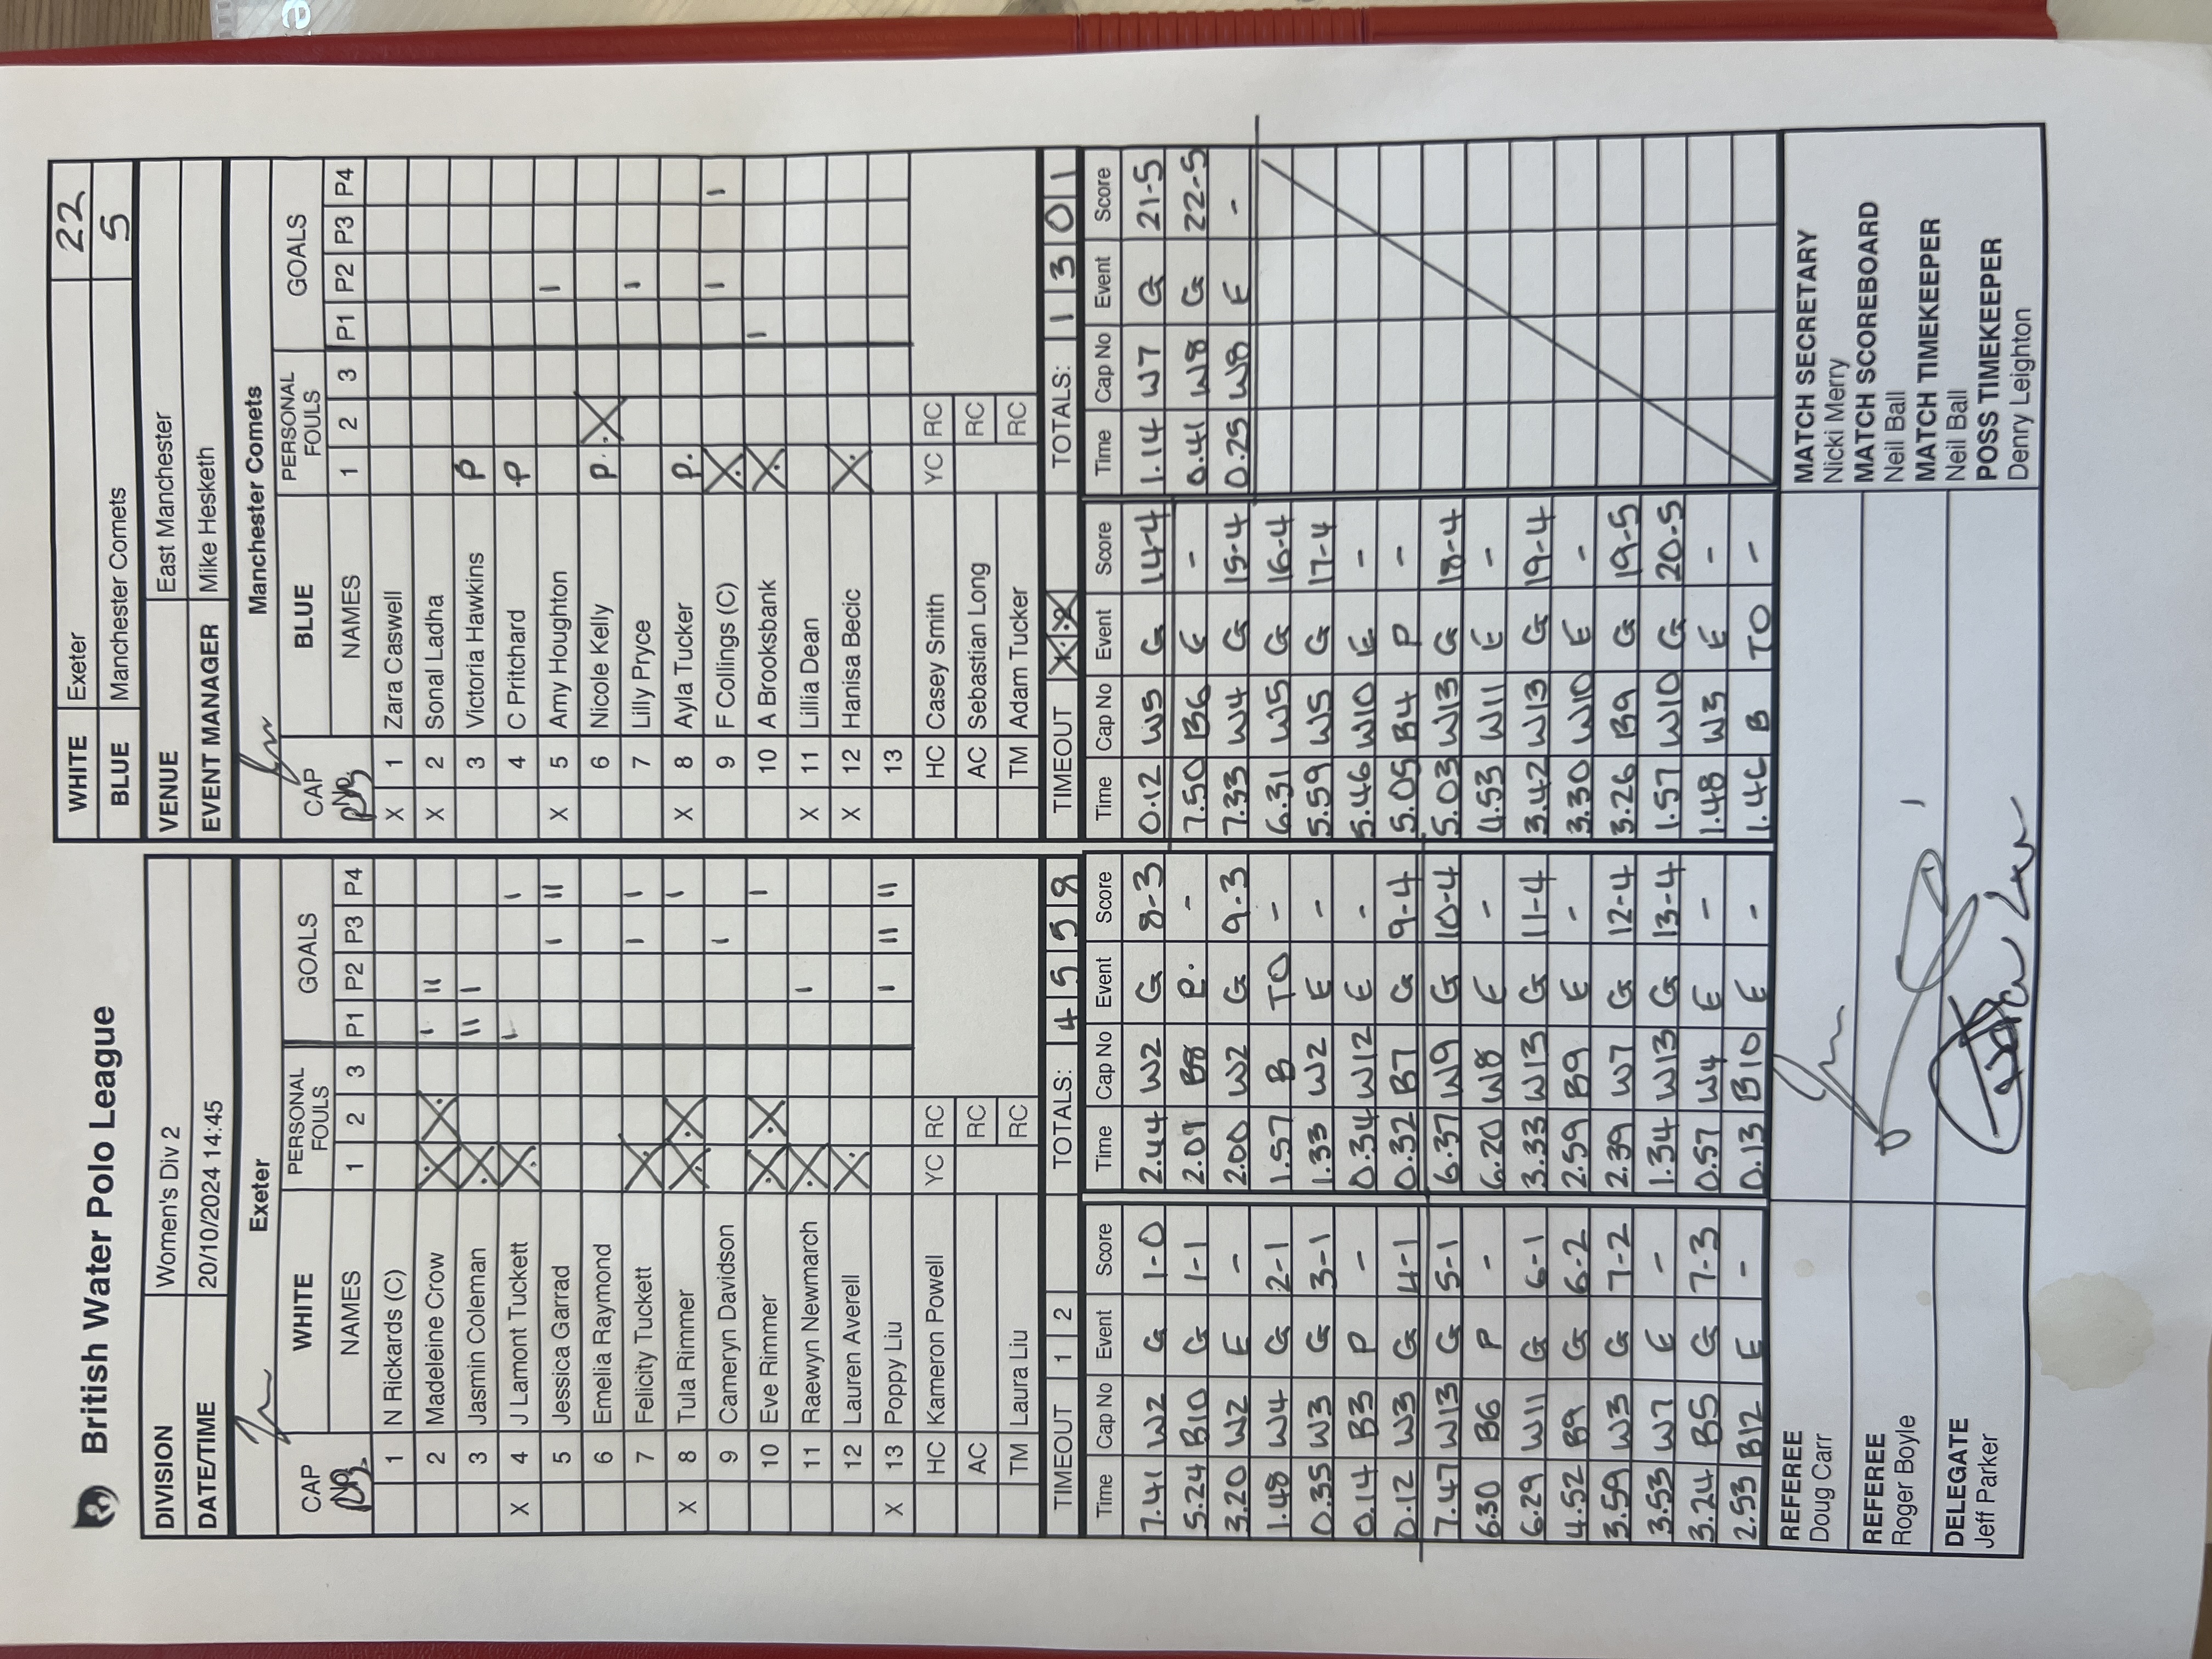 British Water Polo League
WHITE Exeter 22
BLUE Manchester Comets 5
DIVISION Women's Div 2
DATE/TIME 20/10/2024 14:45
VENUE East Manchester
EVENT MANAGER Mike Hesketh
Exeter
CAP No WHITE PERSONAL FOULS GOALS
NAMES 1 2 3 P1 P2 P3 P4
1 N Rickards (C)
2 Madeleine Crow X X I II
3 Jasmin Coleman X II I
X 4 J Lamont Tuckett X I I
5 Jessica Garrad I II
6 Emelia Raymond
7 Felicity Tuckett X I I
X 8 Tula Rimmer X X I
9 Cameryn Davidson I
10 Eve Rimmer X X I
11 Raewyn Newmarch X I
12 Lauren Averell X
X 13 Poppy Liu I II II
HC Kameron Powell YC RC
AC RC
TM Laura Liu RC
TIMEOUT 1 2 TOTALS: 4 5 5 8
Manchester Comets
CAP No BLUE PERSONAL FOULS GOALS
NAMES 1 2 3 P1 P2 P3 P4
X 1 Zara Caswell
X 2 Sonal Ladha
3 Victoria Hawkins P
4 C Pritchard P
X 5 Amy Houghton I
6 Nicole Kelly P. X
7 Lilly Pryce I
X 8 Ayla Tucker P.
9 F Collings (C) X I I
10 A Brooksbank X I
X 11 Lillia Dean
X 12 Hanisa Becic X
13
HC Casey Smith YC RC
AC Sebastian Long RC
TM Adam Tucker RC
TIMEOUT X X TOTALS: 1 3 0 1
Time Cap No Event Score
7.41 W2 G 1-0
5.24 B10 G 1-1
3.20 W2 E -
1.48 W4 G 2-1
0.35 W3 G 3-1
0.14 B3 P -
0.12 W3 G 4-1
7.47 W13 G 5-1
6.30 B6 P -
6.29 W11 G 6-1
4.52 B9 G 6-2
3.59 W3 G 7-2
3.53 W7 E -
3.24 B5 G 7-3
2.53 B12 E -
Time Cap No Event Score
2.44 W2 G 8-3
2.07 B8 P. -
2.00 W2 G 9-3
1.57 B TO -
1.33 W2 E -
0.34 W12 E -
0.32 B7 G 9-4
6.37 W9 G 10-4
6.20 W8 E -
3.33 W13 G 11-4
2.59 B9 E -
2.39 W7 G 12-4
1.34 W13 G 13-4
0.57 W4 E -
0.13 B10 E -
Time Cap No Event Score
0.12 W5 G 14-4
7.50 B6 E -
7.33 W4 G 15-4
6.31 W5 G 16-4
5.59 W5 G 17-4
5.46 W10 E -
5.05 B4 P -
5.03 W13 G 18-4
4.53 W11 E -
3.42 W13 G 19-4
3.30 W10 E -
3.26 B9 G 19-5
1.57 W10 G 20-5
1.48 W3 E -
B TO -
Time Cap No Event Score
1.14 W7 G 21-5
0.41 W8 G 22-5
0.25 W8 E -
REFEREE
Doug Carr
REFEREE
Roger Boyle
DELEGATE
Jeff Parker
MATCH SECRETARY
Nicki Merry
MATCH SCOREBOARD
Neil Ball
MATCH TIMEKEEPER
Neil Ball
POSS TIMEKEEPER
Denry Leighton